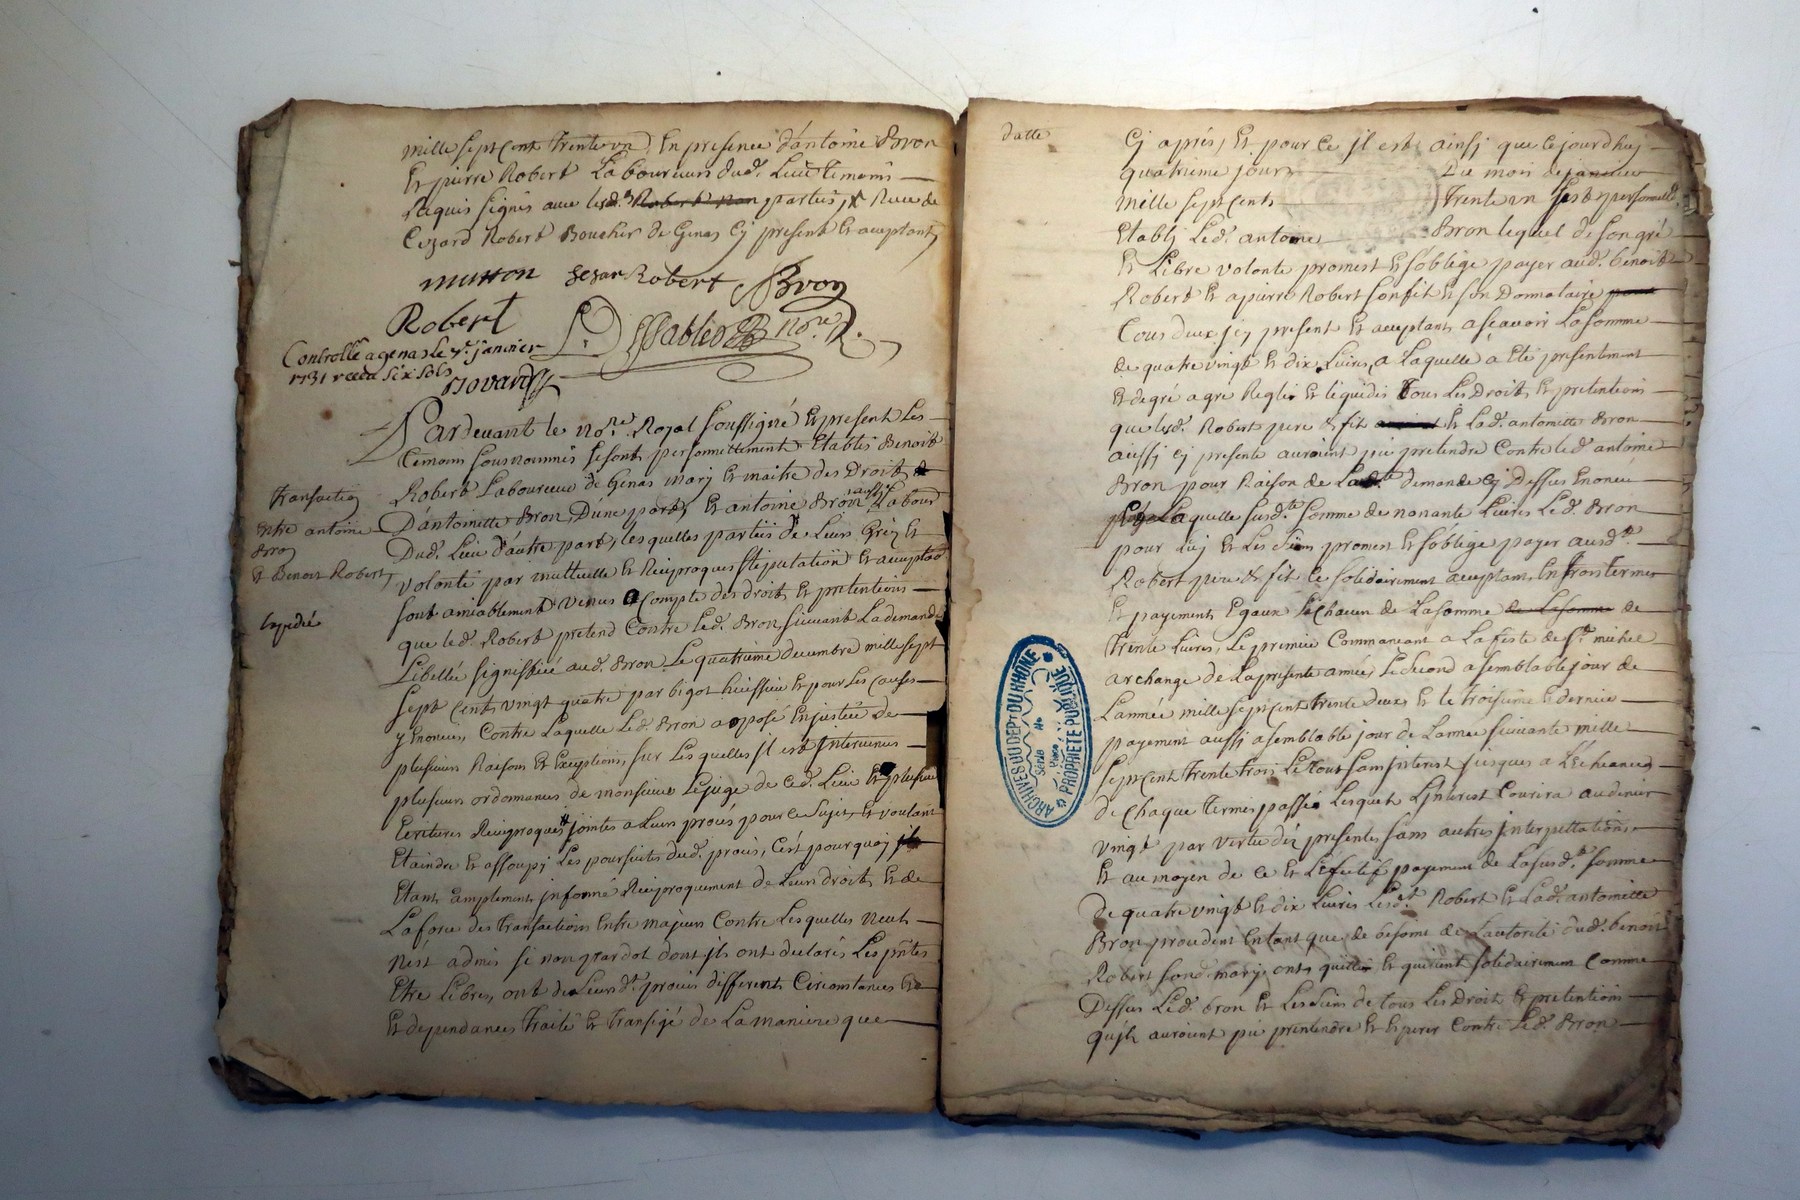 mille sept cent trente un, En presence d'antoine Bron
Et pierre Robert Laboureurs dud. Lieu temoins
Requis signés avec lesd. Robert parties, & Rieu de
Cezard Robert Boucher de Genas Cy present Et acceptant,
mutton sesar Robert Bron
Robert
Sablier Nore
Controllé a genas le 7e. janvier
1731 receu six sols
Bovard
Pardevant le nore. Royal soussigné Et present Les
temoins sousnommés se sont personnellement Etablis Benoit
Robert Laboureur de Genas mary Et maitre des Droits
D'antoinette Bron, D'une part, Et antoine Bron aussy Labour
Dud. Lieu D'autre part, lesquelles parties De Leurs Gréz Et
volonté par mutuelle Et Reciproques stipulation Et acceptaon
sont amiablement venus a Compte des droits Et pretentions
que led. Robert pretend Contre led. Bron, suivant La demande
Libellée signiffiée aud. Bron Le quatrieme decembre mille sept
sept Cents vingt quatre par bigot huissier Et pour Les Causes
y Enoncées, Contre Laquelle Led. Bron a oposé En justice de
plusieurs Raisons Et Exceptions, sur Lesquelles jl est Intervenus
plusieurs ordonnances de monsieur Le juge de Ced. Lieu Et plusieurs
Ecritures Reciproques jointes a Leurs procés pour ce sujet, Et voulant
Etaindre Et assoupy Les poursuites dud. procés, C'est pourquoy
Etant amplement jnformé Reciproquement de Leurs droits Et de
La force des transactions Entre majeurs Contre Lesquelles Neut
N'est admis si non dont jls ont declarés Les pntes
Etre Libres, ont de Leursd. procés differents Circonstances Et
Et dependances traité Et transigé de La maniere que
transaction
Entre antoine
Bron
Et Benoit Robert
Expedié
datte
Cy aprés, Et pour ce jl est ainsy que cejourd'huy
quatrieme jour Du mois de janvier
mille sept cents trente un s'est personnelle.
Etably Led. antoine Bron lequel de son gré
Et Libre volonté promest Et s'oblige payer aud. benoit
Robert Et a pierre Robert son fit Et son Donnataire
tous deux jcy present Et acceptants a scavoir La somme
de quatre vingt Et dix Livres, a Laquelle a Eté presentement
Et de gré a gre Reglés Et liquidés tous Les Droits Et pretentions
que lesd. Robert pere & fit Et Lad. antoinette Bron
aussy cy presente auroient pu pretendre Contre led antoine
Bron pour Raison de Ladte demande Cy Dessus Enoncée
Laquelle susdte. somme de nonante Livres Led. Bron
pour Luy Et Les siens promest Et s'oblige payer ausdts
Robert pere & fit ce solidairement acceptans, En trois termes
Et payements Egaux Et Chacun de La somme de La somme de
trente Livres, Le premier Commançant a La feste de St. michel
archange de La presente année, Le second a semblable jour de
L'année mille sept cent trente deux, Et le troisieme Et dernier
payement aussy a semblable jour de L'année suivante mille
sept cent trente trois Le tout sans jnterest jusques a L'Echeance
de Chaque termes passé Lesquels L'jnterest Courira au denier
vingt par vertu des presentes, sans autres jnterpellations
Et au moyen de ce Et L'efectif payement de La susd. somme
de quatre vingt Et dix Livres Lesdt Robert Et Lad. antoinette
Bron procedent En tant que de besoins de L'autorité dud. benoit
Robert son mary, ont quitté Et quittent solidairement Comme
Dessus Led. bron Et Les siens de tous Les Droits Et pretentions
qu'jls auroient pu pretendre Et Esperer Contre Led. Bron
ARCHIVES DU DEPT DU RHONE
Série No
Pièce
PROPRIÉTÉ PUBLIQUE